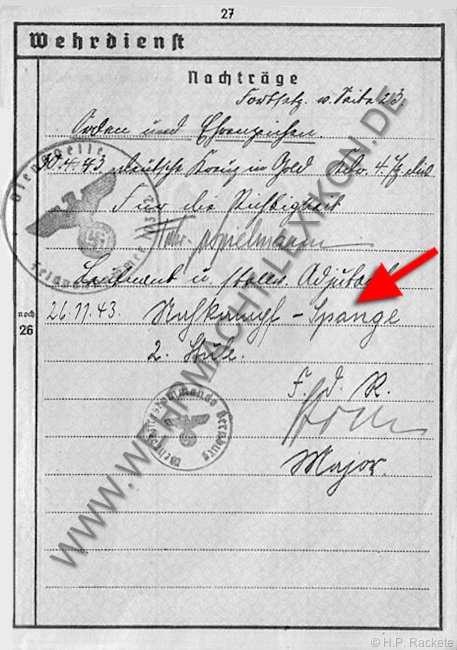 27
Wehrdienst
Nachträge
Fortsetz. v. Seite 23.
Orden und Ehrenzeichen.
4.43 deutsche Kreuz in Gold
Für die Richtigkeit
Leutnant u. Adjutant
noch
26
26.11.43. Nahkampf-Spange
2. Stufe.
F. d. R.
Major.
Dienststelle
Feldpostnummer
Wehrbezirkskommando
WWW.WEHRMACHTLEXIKON.DE
© H.P. Rackete